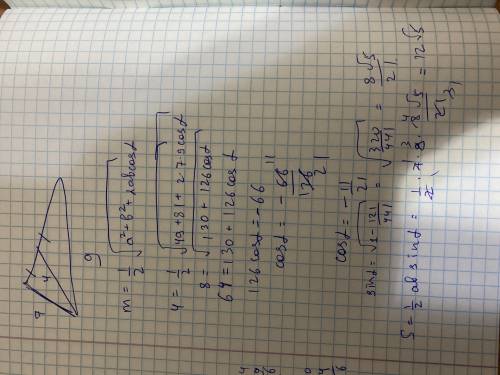 7
4
9
m = 1/2 √a² + b² + 2ab cos α
4 = 1/2 √49 + 81 + 2·7·9 cos α
8 = √130 + 126 cos α
64 = 130 + 126 cos α
126 cos α = -66
cos α = - 66/126 11/21
cos α = - 11/21
sin α = √1 - 121/441 = √320/441 = 8√5/21
S = 1/2 ab sin α = 1/2 · 7 · 9 · 8√5/21 = 12√5